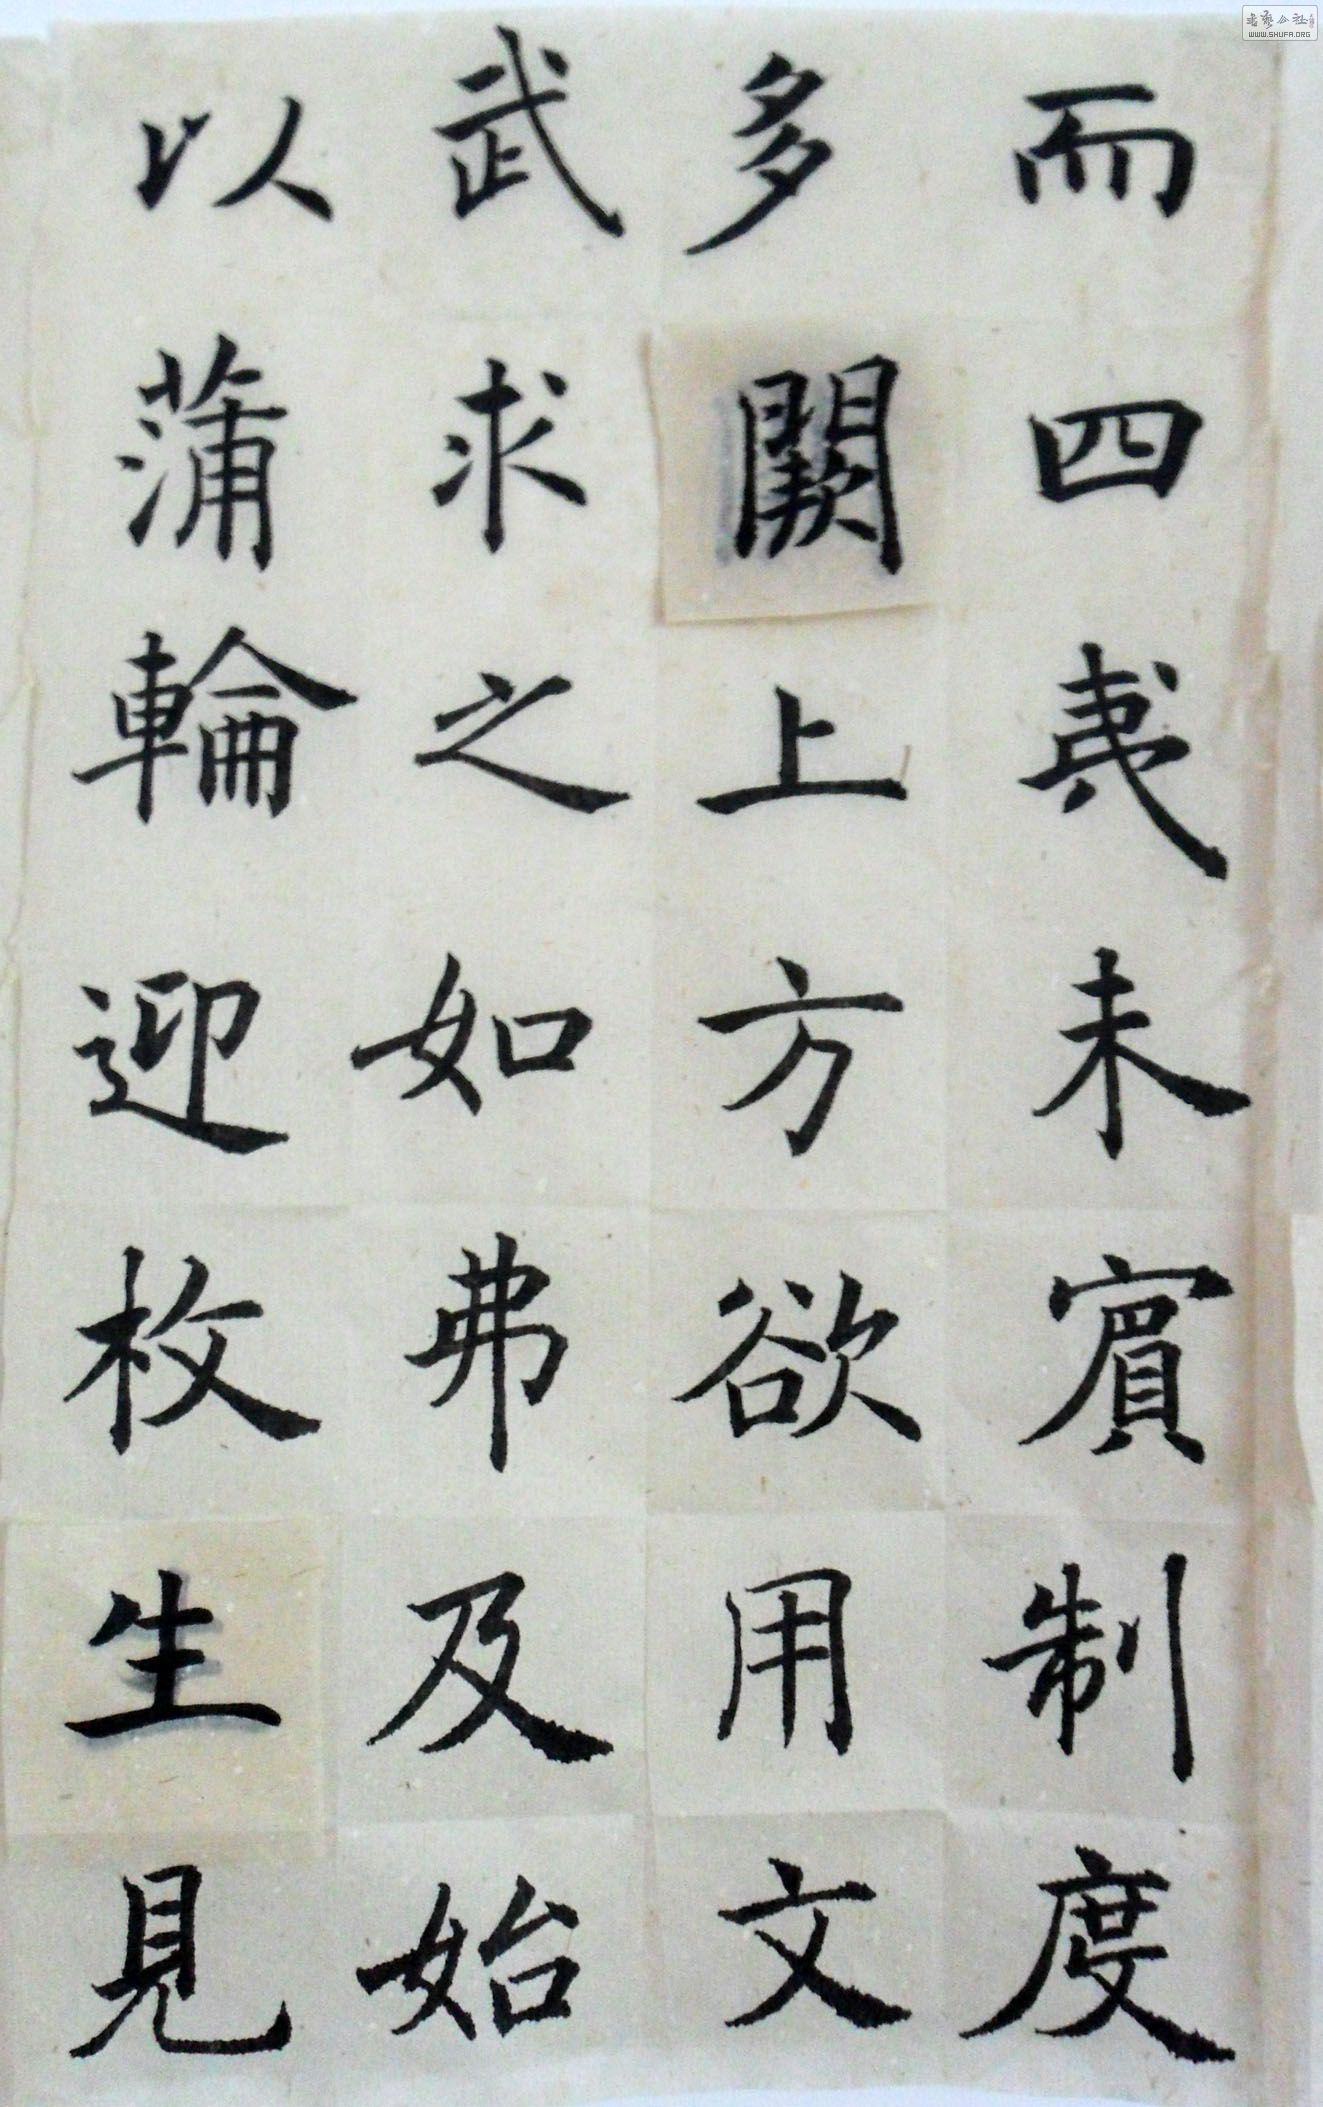 而四夷未賓制度
多闕上方欲用文
武求之如弗及始
以蒲輪迎枚生見
书艺公社
WWW.SHUFA.ORG